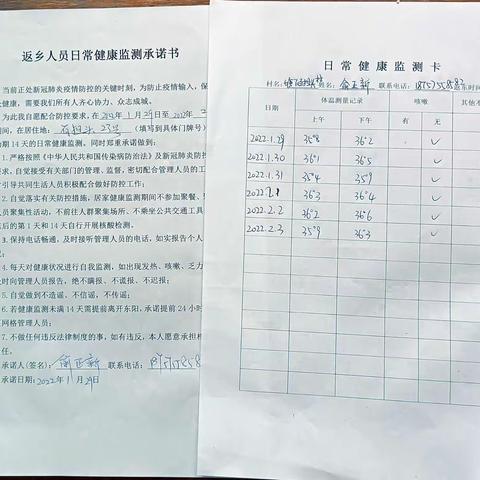 返乡人员日常健康监测承诺书
当前正处新冠肺炎疫情防控的关键时刻，为防止疫情输入，保
健康，需要我们所有人齐心协力、众志成城。
为此我自愿配合防控要求，在2022年1月29日至2022年
间，在居住地：23号（填写到具体门牌号）
期14天的日常健康监测。同时郑重承诺做到：
1.严格按照《中华人民共和国传染病防治法》及新冠肺炎防控
要求，自觉接受有关部门的管理、监督，密切配合管理人员的工
引导共同生活人员积极配合做好防控工作；
2.自觉落实有关防控措施，居家健康监测期间不参加聚餐、
人员聚集性活动，不前往人群聚集场所、不乘坐公共交通工具
后的第1天和14天自行开展核酸检测。
3.保持电话畅通，及时接听管理人员的电话，如实报告个人
4.每天对健康状况进行自我监测，如出现发热、咳嗽、乏力
时向管理人员报告，绝不瞒报、不谎报、不迟报；
5.自觉做到不造谣、不信谣、不传谣；
6.若健康监测未满14天需提前离开东阳，承诺提前24小时
网格管理人员；
7.不做任何违反法律制度的事，如有违反，本人愿意承担相
任。
承诺人(签名)：俞正新 联系电话：
承诺日期：2022年1月29日
日常健康监测卡
村名： 姓名：俞正新 联系电话： 返东时间
日期 体温测量记录 咳嗽 其他
上午 下午 有 无
2022.1.29 35°8 36°2 ✓
2022.1.30 36°1 36°5 ✓
2022.1.31 35°4 35°9 ✓
2022.2.1 36°3 36°4 ✓
2022.2.2 36°2 36°6 ✓
2022.2.3 35°9 36°3 ✓